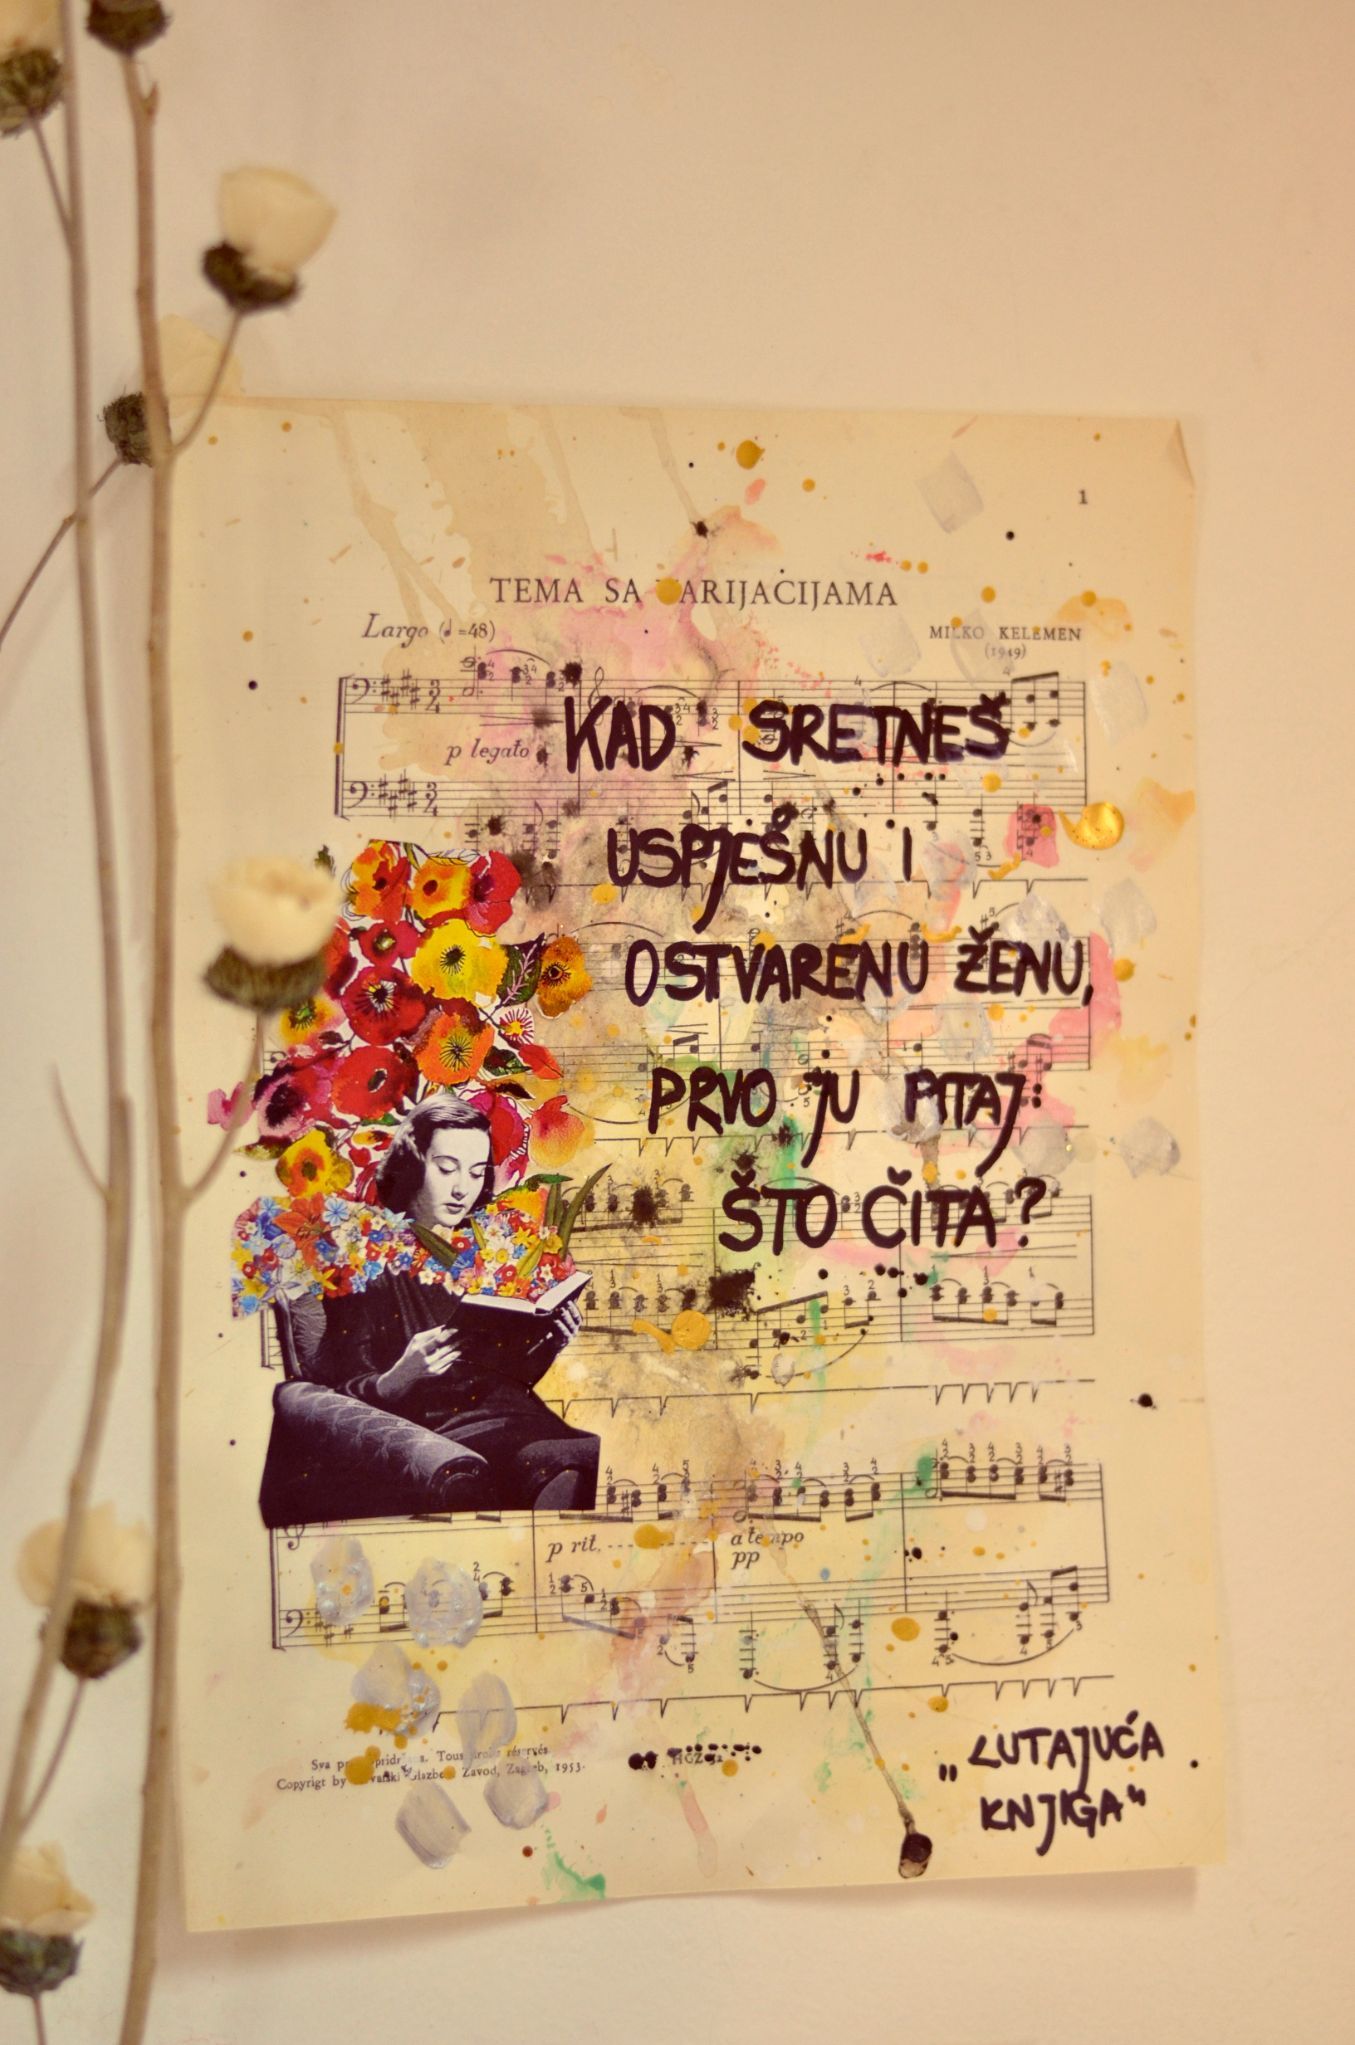 1
TEMA SA VARIJACIJAMA
Largo (♩=48)
MILKO KELEMEN
(1949)
p legato
KAD SRETNEŠ
USPJEŠNU I
OSTVARENU ŽENU,
PRVO JU PITAJ:
ŠTO ČITA?
p rit.
a tempo
pp
Sva pridržana. Tous droits réservés
Copyrigt by Hrvatski Glazbeni Zavod, Zagreb, 1953.
HGZ
„LUTAJUĆA
KNJIGA“